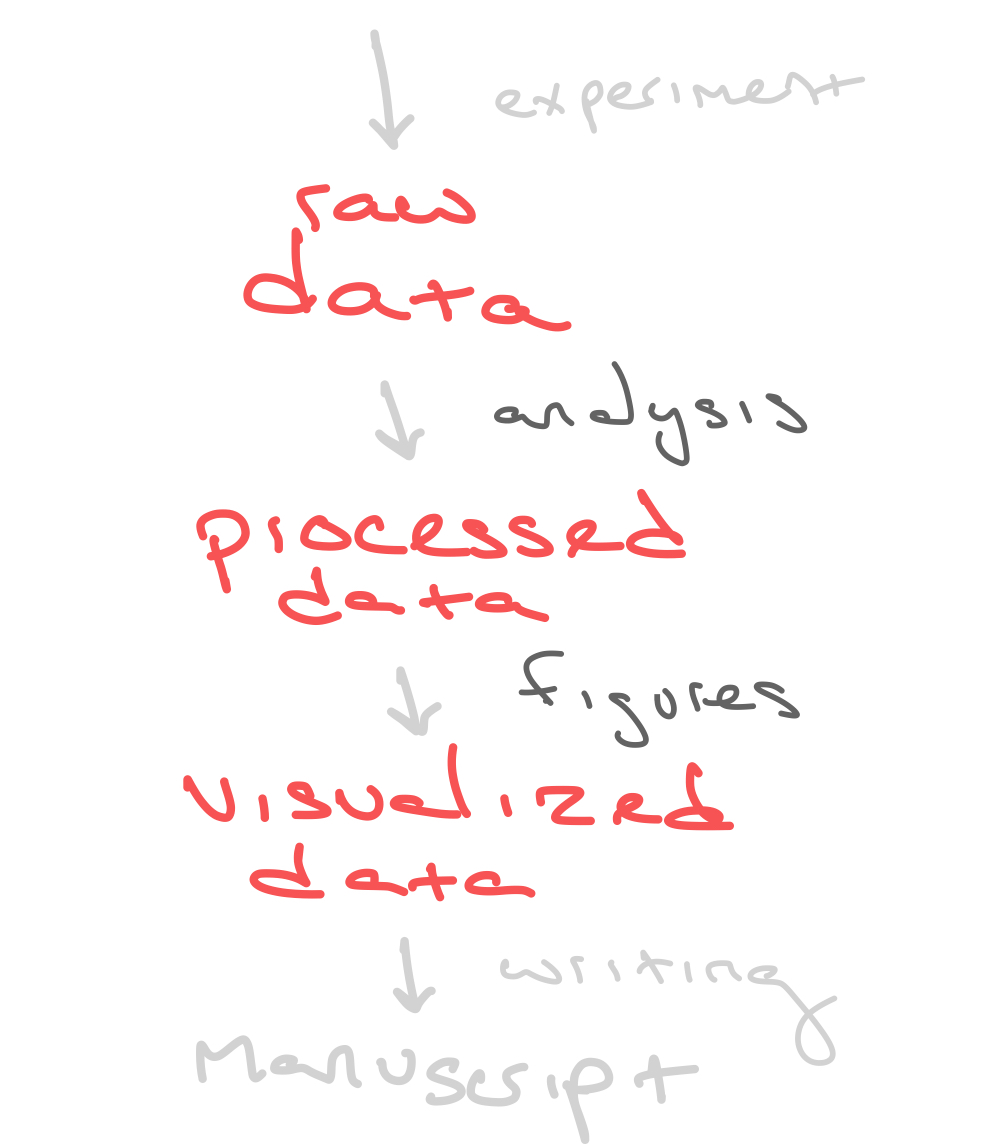 experiment
raw
data
analysis
processed
data
figures
visualized
data
writing
Manuscript